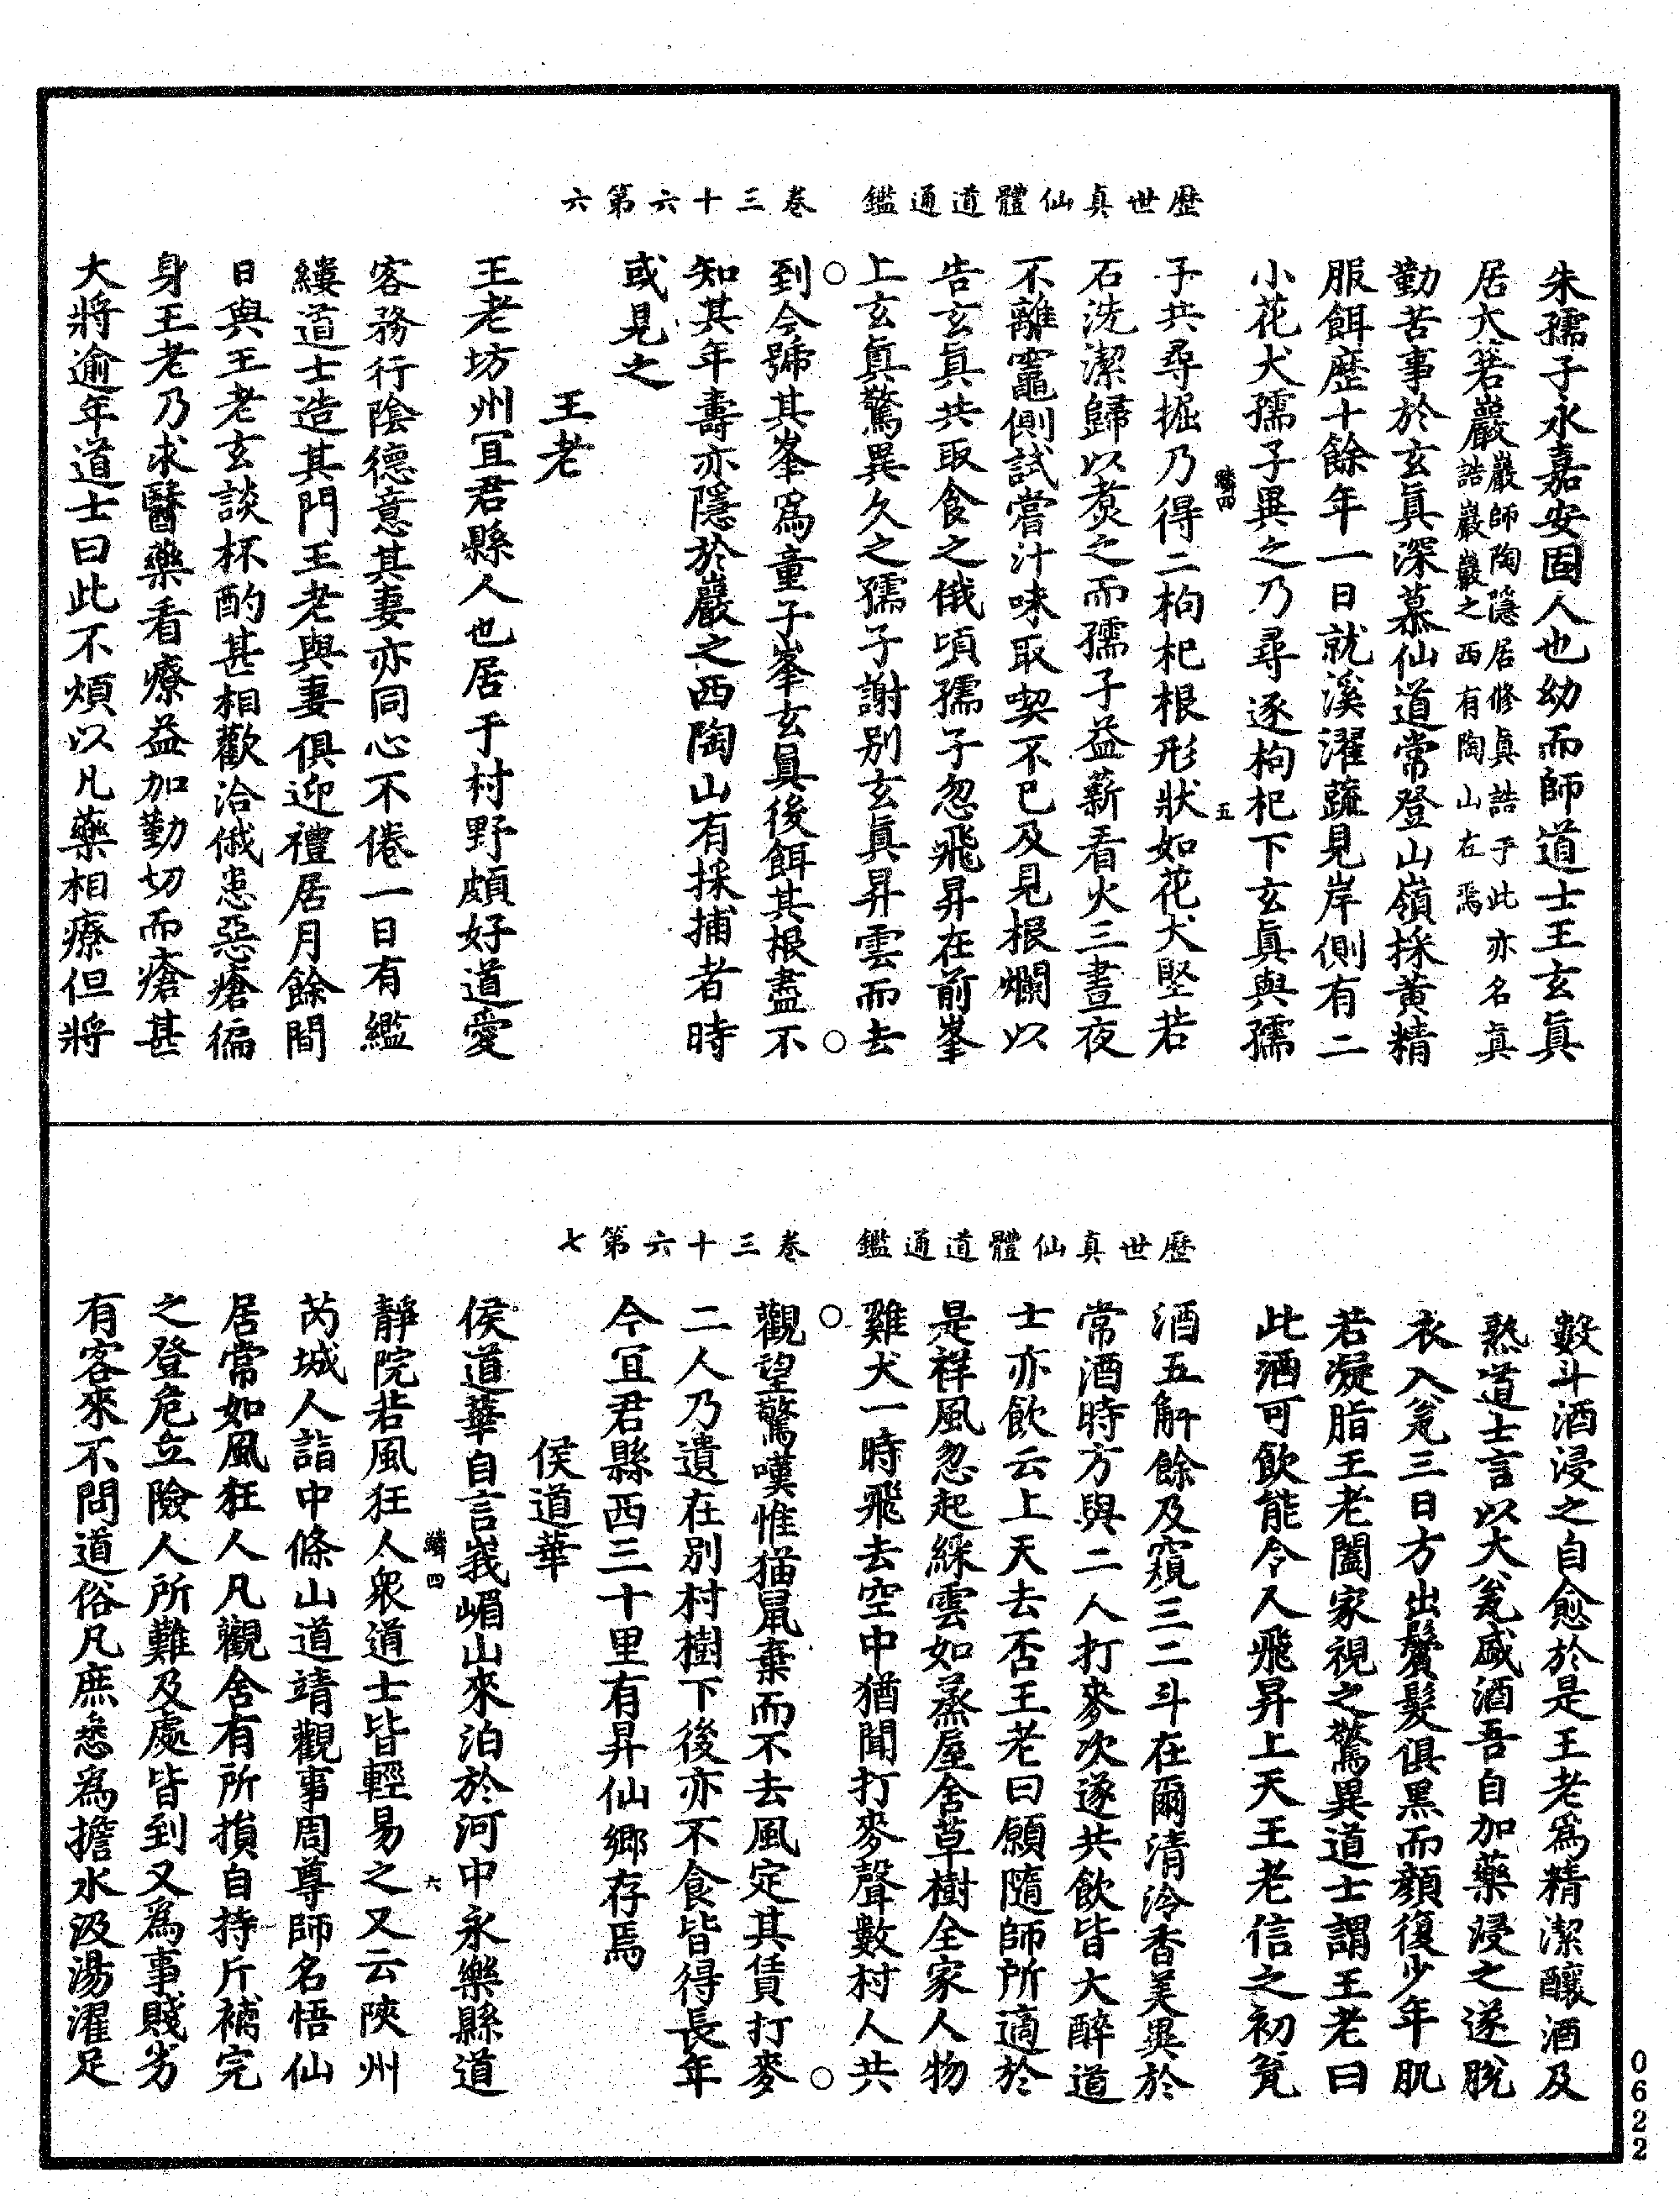 歷世真仙體道通鑑　卷三十六第六
朱孺子永嘉安固人也幼而師道士王玄眞
居大箬巖巖師陶隱居修眞誥于此亦名眞誥巖巖之西有陶山在焉
勤苦事於玄眞深慕仙道常登山嶺採黃精
服餌歷十餘年一日就溪濯蔬見岸側有二
小花犬孺子異之乃尋逐枸杞下玄眞與孺
鱗四　五
子共尋掘乃得二枸杞根形狀如花犬堅若
石洗潔歸以煑之而孺子益薪看火三晝夜
不離竈側試嘗汁味取喫不已及見根爛以
告玄眞共取食之俄頃孺子忽飛昇在前峯
上玄眞驚異久之孺子謝别玄眞昇雲而去
到今號其峯爲童子峯玄眞後餌其根盡不
知其年壽亦隱於巖之西陶山有採捕者時
或見之
王老
王老坊州冝君縣人也居于村野頗好道愛
客務行陰德意其妻亦同心不倦一日有繿
縷道士造其門王老與妻俱迎禮居月餘間
日與王老玄談杯酌甚相歡洽俄患惡瘡徧
身王老乃求醫藥看療益加勤切而瘡甚
大將逾年道士曰此不煩以凡藥相療但將
歷世真仙體道通鑑　卷三十六第七
數斗酒浸之自愈於是王老爲精潔釀酒及
熟道士言以大瓮盛酒吾自加藥浸之遂脫
衣入瓮三日方出鬢髮俱黑而顏復少年肌
若凝脂王老闔家視之驚異道士謂王老曰
此酒可飲能令人飛昇上天王老信之初瓮
酒五斛餘及窺三二斗在爾清泠香美異於
常酒時方與二人打麥次遂共飲皆大醉道
士亦飲云上天去否王老曰願隨師所適於
是祥風忽起綵雲如蒸屋舍草樹全家人物
雞犬一時飛去空中猶聞打麥聲數村人共
觀望驚嘆惟猫鼠棄而不去風定其賃打麥
二人乃遺在別村樹下後亦不食皆得長年
今冝君縣西三十里有昇仙鄉存焉
侯道華
侯道華自言峩嵋山來泊於河中永樂縣道
鱗四　六
靜院若風狂人衆道士皆輕易之又云陝州
芮城人詣中條山道靖觀事周尊師名悟仙
居常如風狂人凡觀舍有所損自持斤補完
之登危立險人所難及處皆到又爲事賤劣
有客來不問道俗凡庶悉爲擔水汲湯濯足
0622